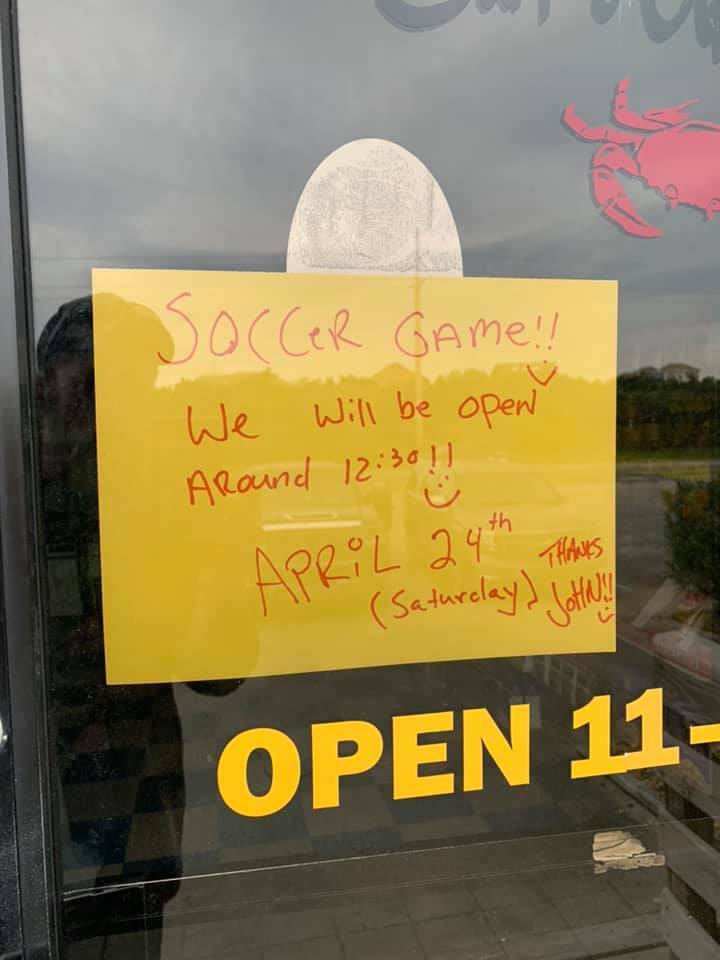 SOCCER GAME!!
We Will be open
Around 12:30!!
APRiL 24th
(Saturday)
THANKS
JOHN!!
OPEN 11-